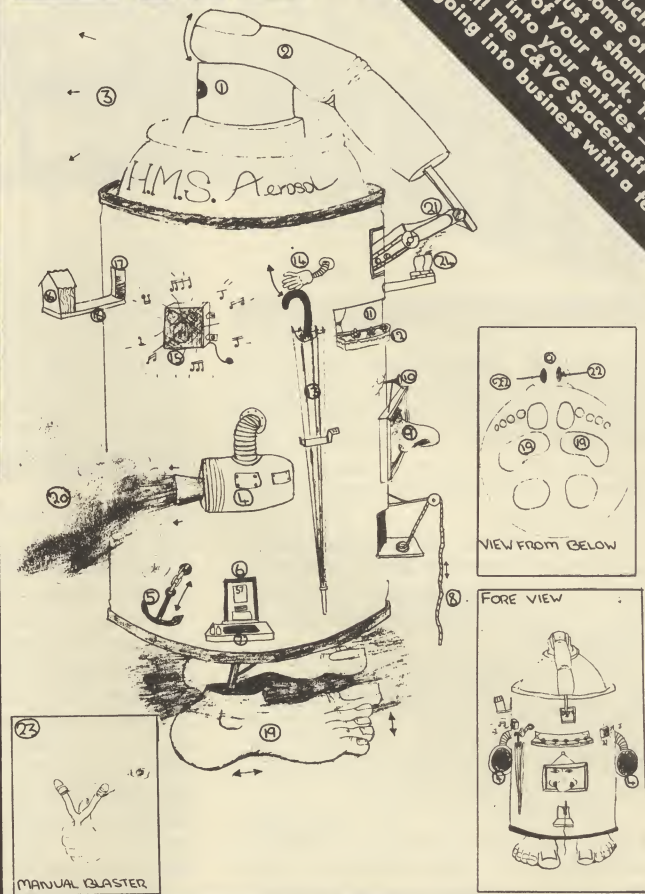 ome of
ust a sham
of your work. T
into your entries –
! The C&VG Spacecraft
going into business with a
2
1
3
H.M.S. Aerosol
21
24
14
17
16
18
15
11
12
13
10
9
4
20
5
6
7
8
19
22
22
19
19
VIEW FROM BELOW
FORE VIEW
23
MANUAL BLASTER